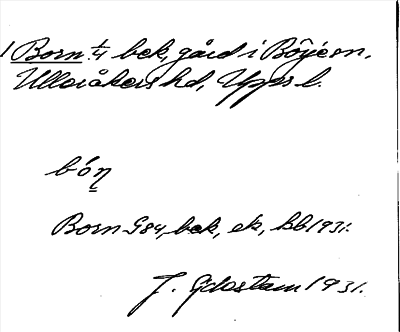 1 Born 1/4 bek, gård i Börje sn,
Ulleråkers hd, Upps l.
bóṇ
Born G84, bek, ek, kb 1931.
J. Gdostam 1931.